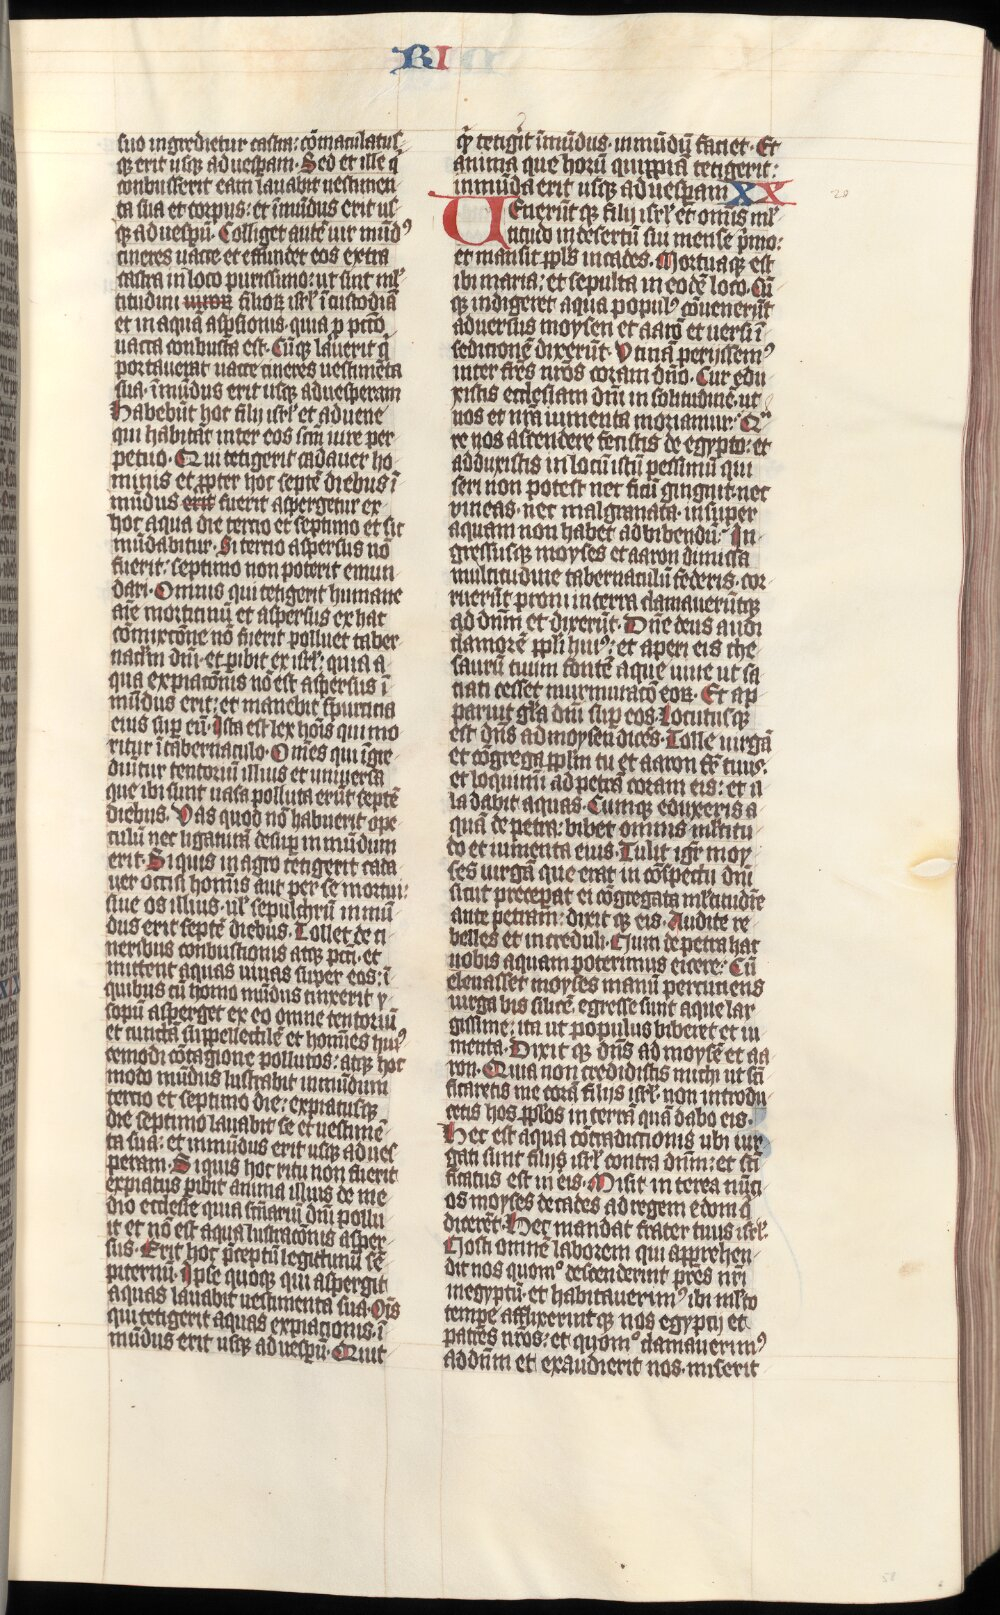 RI
suo ingredietur castra: cōmaculatusꝫ
qꝫ erit usqꝫ ad uesperam. Sed et ille q̄
conbusserit eam lauabit uestimen
ta sua et corpus: et īmūdus erit us
qꝫ ad uesperū. Colliget autē uir mūdꝰ
cineres uacce et effundet eos extra
castra in loco purissimo: ut sint ml̄
titudini filioꝝ isrl̄ ī custodiā
et in aquā aspersionis. quia ꝓ pctō
uacca conbusta est. Cūqꝫ lauerit q̄
portauerat uacce cineres uestimēta
sua. īmūdus erit usqꝫ ad uesperam
Habebūt hoc filij isrl̄ et aduene
qui habitāt inter eos scm̄ iure per
petuo. Qui tetigerit cadauer ho
minis et ꝓpter hoc septē diebus ī
mūdus erit fuerit aspergetur ex
hoc aqua die tercio et septimo et sic
mūdabitur. Si tercio aspersus nō
fuerit: septimo non poterit emun
dari. Omnis qui tetigerit humane
aīe morticinū et aspersus ex hac
cōmixtōne nō fuerit polluet taber
nacl̄m dn̄i. et ꝑibit ex isrl̄: quia a
qua expiacōnis nō est aspersus ī
mūdus erit: et manebit spurcicia
eius suꝑ eū. Ista est lex hoīs qui mo
ritur ī tabernaculo. Omēs qui īgre
diūtur tentoriū illius et uniuersa
que ibi sunt uasa polluta erūt septē
diebus. Vas quod nō habuerit ope
culū nec ligaturā desuꝑ inmūdum
erit. Si quis in agro tetigerit cada
uer occisi homīs aut per se mortui:
siue os illius. ul̄ sepulchrū inmū
dus erit septē diebus. Tollēt de ci
neribus conbustionis atqꝫ pctī. et
mittent aquas uiuas super eos: ī
quibus cū homo mūdus tinxerit y
sopū asperget ex eo omne tentoriū
et cunctā suppellectilē et homīes huiꝰ
cemodi cōtagione pollutos: atqꝫ hoc
modo mūdus lustrabit inmūdum
tercio et septimo die: expiatusqꝫ
die septimo lauabit se et uestimē
ta sua: et inmūdus erit usqꝫ ad ues
peram. Si quis hoc ritu non fuerit
expiatus ꝑibit anima illius de me
dio ecclesie quia scn̄ariū dn̄i pollu
it et nō est aqua lustracōnis asper
sus. Erit hoc p̄ceptū legittimū sē
piternū. Ipse quoqꝫ qui aspergit
aquas lauabit uestimenta sua. Oīs
qui tetigerit aquas expiacionis. ī
mūdus erit usqꝫ ad uesperū. Quit
qͥ tetigīt īmūdus. inmūdū faciet. Et
anima que horū quippiā tetigerit:
inmūda erit usqꝫ ad uesperam XX
20
Uenerūt qꝫ filij isrl̄ et omīs ml̄
titudo in desertū sin mense p̄mo:
et mansit ppl̄s in cades. Mortuaqꝫ est
ibi maria: et sepulta in eodē loco. Cū
qꝫ indigeret aqua populꝰ cōuenerūt
aduersus moysen et aarō et uersi ī
sedicionē dixerūt. Vtinā perissemꝰ
inter fr̄es nr̄os coram dn̄o. Cur edu
xistis ecclesiam dn̄i in solitudinē. ut
nos et nr̄a iumenta moriamur: Qᵃ
re nos ascendere fecistis de egypto: et
adduxistis in locū istū pessimū qui
seri non potest nec ficū gingnit. nec
vineas. nec malgranata. insuper
aquam non habet ad bibendū: In
gressusqꝫ moyses et aaron dimissa
multitudine tabernaculū federis. cor
ruerūt proni in terra clamauerūtqꝫ
ad dn̄m et dixerūt. Dn̄e deus audi
clamorē ppl̄i huiꝰ: et aperi eis the
saurū tuum fontē aque uiue ut sa
ciati cesset murmuracō eoꝝ. Et ap
paruit gl̄a dn̄i suꝑ eos. Locutusqꝫ
est dn̄s ad moysen dicēs. Tolle uirgā
et cōgrega ppl̄m tu et aaron fr̄ tuus.
et loquimī ad petrā coram eis: et il
la dabit aquas. Cumqꝫ eduxeris a
quā de petra: bibet omnis ml̄titu
do et iumenta eius. Tulit igr̄ moy
ses uirgā que erat in cōspectu dn̄i
sicut preceperat ei cōgregata ml̄titudīe
ante petram: dixit qꝫ eis. Audite re
belles et increduli. Num de petra hac
uobis aquam poterimus eicere: Cū
eleuasset moyses manū percuciens
uirga bis silicē egresse sunt aque lar
gissime: ita ut populus biberet et iu
menta. Dixit qꝫ dn̄s ad moysē et aa
ron. Quia non credidistis michi ut sc̄i
ficaretis me corā filijs isrl̄. non introdu
cetis hos ppl̄os in terrā quā dabo eis.
Hec est aqua cōtradictionis ubi iur
gati sunt filij isrl̄ contra dn̄m: et sc̄i
ficatus est in eis. Misit interea nūci
os moyses de cades ad regem edom q̄
dicerēt. Hec mandat frater tuus isrl̄.
Nosti omnē laborem qui apprehen
dit nos quomᵒ descenderint pr̄es nr̄i
in egyptū. et habitauerimꝰ ibi ml̄to
tempe afflixerint qꝫ nos egyptij et
patres nr̄os: et quomᵒ clamauerimꝰ
ad dn̄m et exaudierit nos. miserit